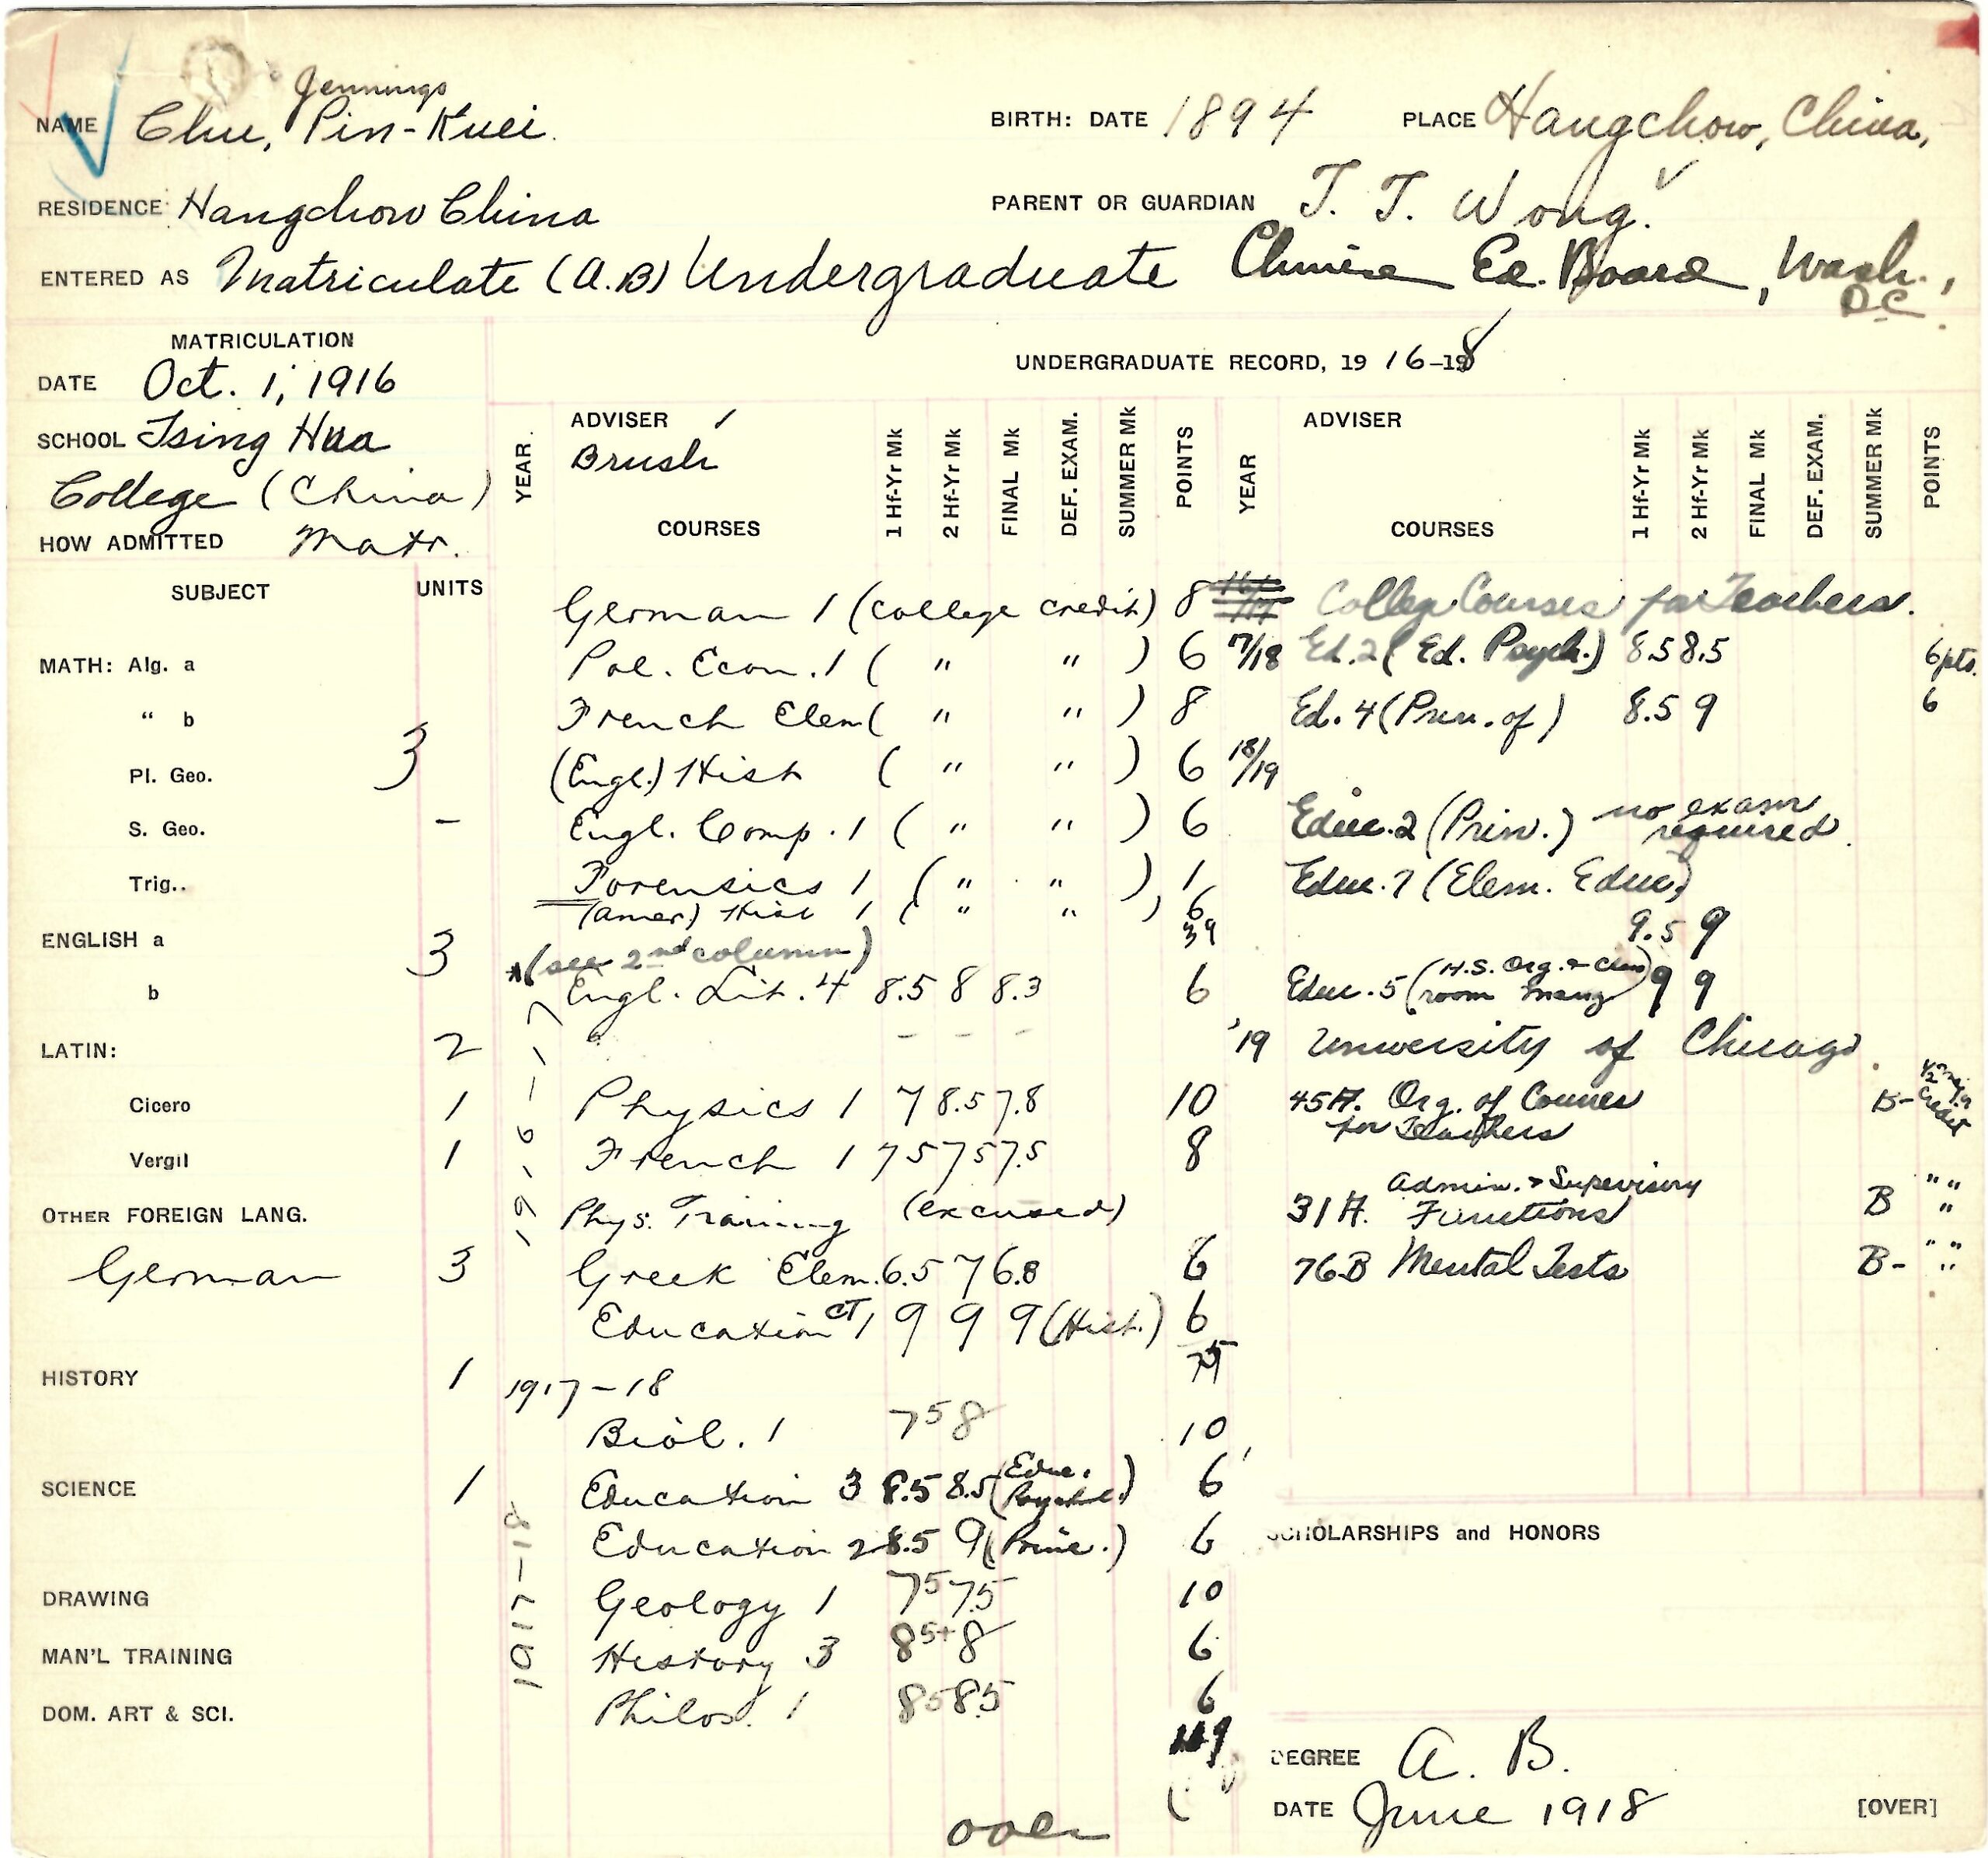 Jennings
NAME Chu, Pin-Kuei. BIRTH: DATE 1894 PLACE Hangchow, China,
RESIDENCE: Hangchow China PARENT OR GUARDIAN T. T. Wong.
ENTERED AS Matriculate (A.B) Undergraduate Chinese Ed. Board, Wash., D.C.
MATRICULATION
DATE Oct. 1, 1916
SCHOOL Tsing Hua
College (China)
HOW ADMITTED Matr.
SUBJECT UNITS
MATH: Alg. a
" b
3
Pl. Geo.
S. Geo. -
Trig..
ENGLISH a 3
b
LATIN: 2
Cicero 1
Vergil 1
OTHER FOREIGN LANG.
German 3
HISTORY 1
SCIENCE 1
DRAWING
MAN'L TRAINING
DOM. ART & SCI.
UNDERGRADUATE RECORD, 19 16-198
YEAR. ADVISER Brush COURSES 1 Hf-Yr Mk 2 Hf-Yr Mk FINAL Mk DEF. EXAM. SUMMER Mk POINTS
German 1 (college credit) 8
Pol. Econ. 1 ( " " ) 6
French Elem ( " " ) 8
(Engl.) Hist ( " " ) 6
Engl. Comp. 1 ( " " ) 6
Forensics 1 ( " " ) 1
(Amer.) Hist 1 ( " " ) 6
39
*(see 2nd column)
1916-17
Engl. Lit. 4 8.5 8 8.3 6
Physics 1 7 8.5 7.8 10
French 1 75 75 7.5 8
Phys. Training (excused)
Greek Elem. 6.5 7 6.8 6
Education CT 1 9 9 9 (Hist.) 6
75
1917-18
Biol. 1 75 8 10
1917-18
Education 3 8.5 8.5 (Educ. Psychol.) 6
Education 2 8.5 9 (Princ.) 6
Geology 1 75 75 10
History 3 85+ 8 6
Philos. 1 85 85 6
119
over
YEAR ADVISER COURSES 1 Hf-Yr Mk 2 Hf-Yr Mk FINAL Mk DEF. EXAM. SUMMER Mk POINTS
College Courses for Teachers.
17/18 Ed. 2 (Ed. Psych.) 8.5 8.5 6 pts.
Ed. 4 (Prin. of) 8.5 9 6
18/19
Educ. 2 (Prin.) no exam required.
Educ. 7 (Elem. Educ)
9.5 9
Educ. 5 (H.S. Org. + Class room Mang) 9 9
'19 University of Chicago.
45A. Org. of Courses for Teachers B- 1/2 Credit
31A. Admin. & Supervisory Functions B " " "
76B Mental Tests B- " " "
SCHOLARSHIPS and HONORS
DEGREE A. B.
DATE June 1918 [OVER]